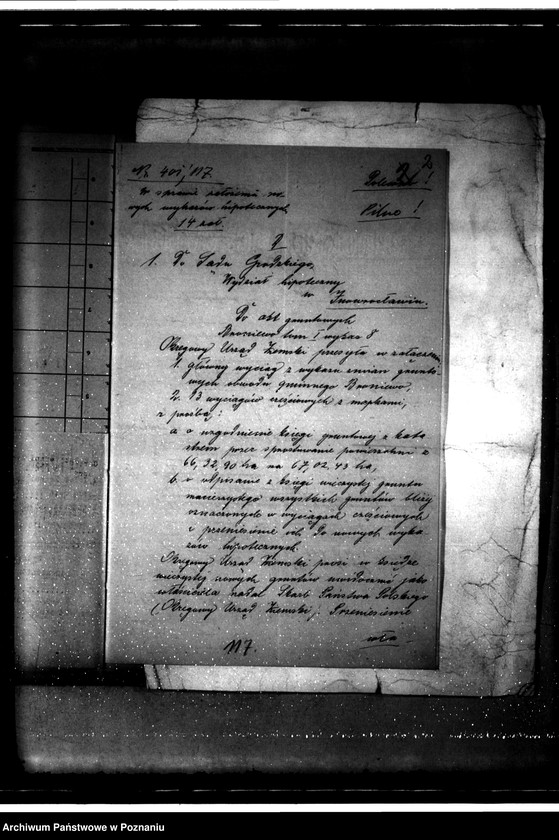 Nr 401/117
W sprawie założenia no-
wych wykazów hipotecznych
14 zał.
Polecony!
Pilno!
1. Do Sądu Grodzkiego,
Wydział hipoteczny
w Inowrocławiu.
Do akt gruntowych
tom I wykaz 8
Okręgowy Urząd Ziemski przesyła w załączeniu
1. główny wyciąg z wykazu zmian grunto-
wych obwodu gminnego
2. 13 wyciągów częściowych z mapkami,
z prośbą:
a. o uzgodnienie księgi gruntowej z kata
strem przez sprostowanie powierzchni z
66,32,90 ha na 67,02,43 ha,
b. o odpisanie z księgi wieczystej gruntu
macierzystego wszystkich gruntów bliżej
oznaczonych w wyciągach częściowych
i przeniesienie ich do nowych wyka
zów hipotecznych.
Okręgowy Urząd Ziemski prosi w księdze
wieczystej nowych gruntów uwidocznić jako
właściciela nadal Skarb Państwa Polskiego
(Okręgowy Urząd Ziemski). Przeniesienie
117.
Archiwum Państwowe w Poznaniu